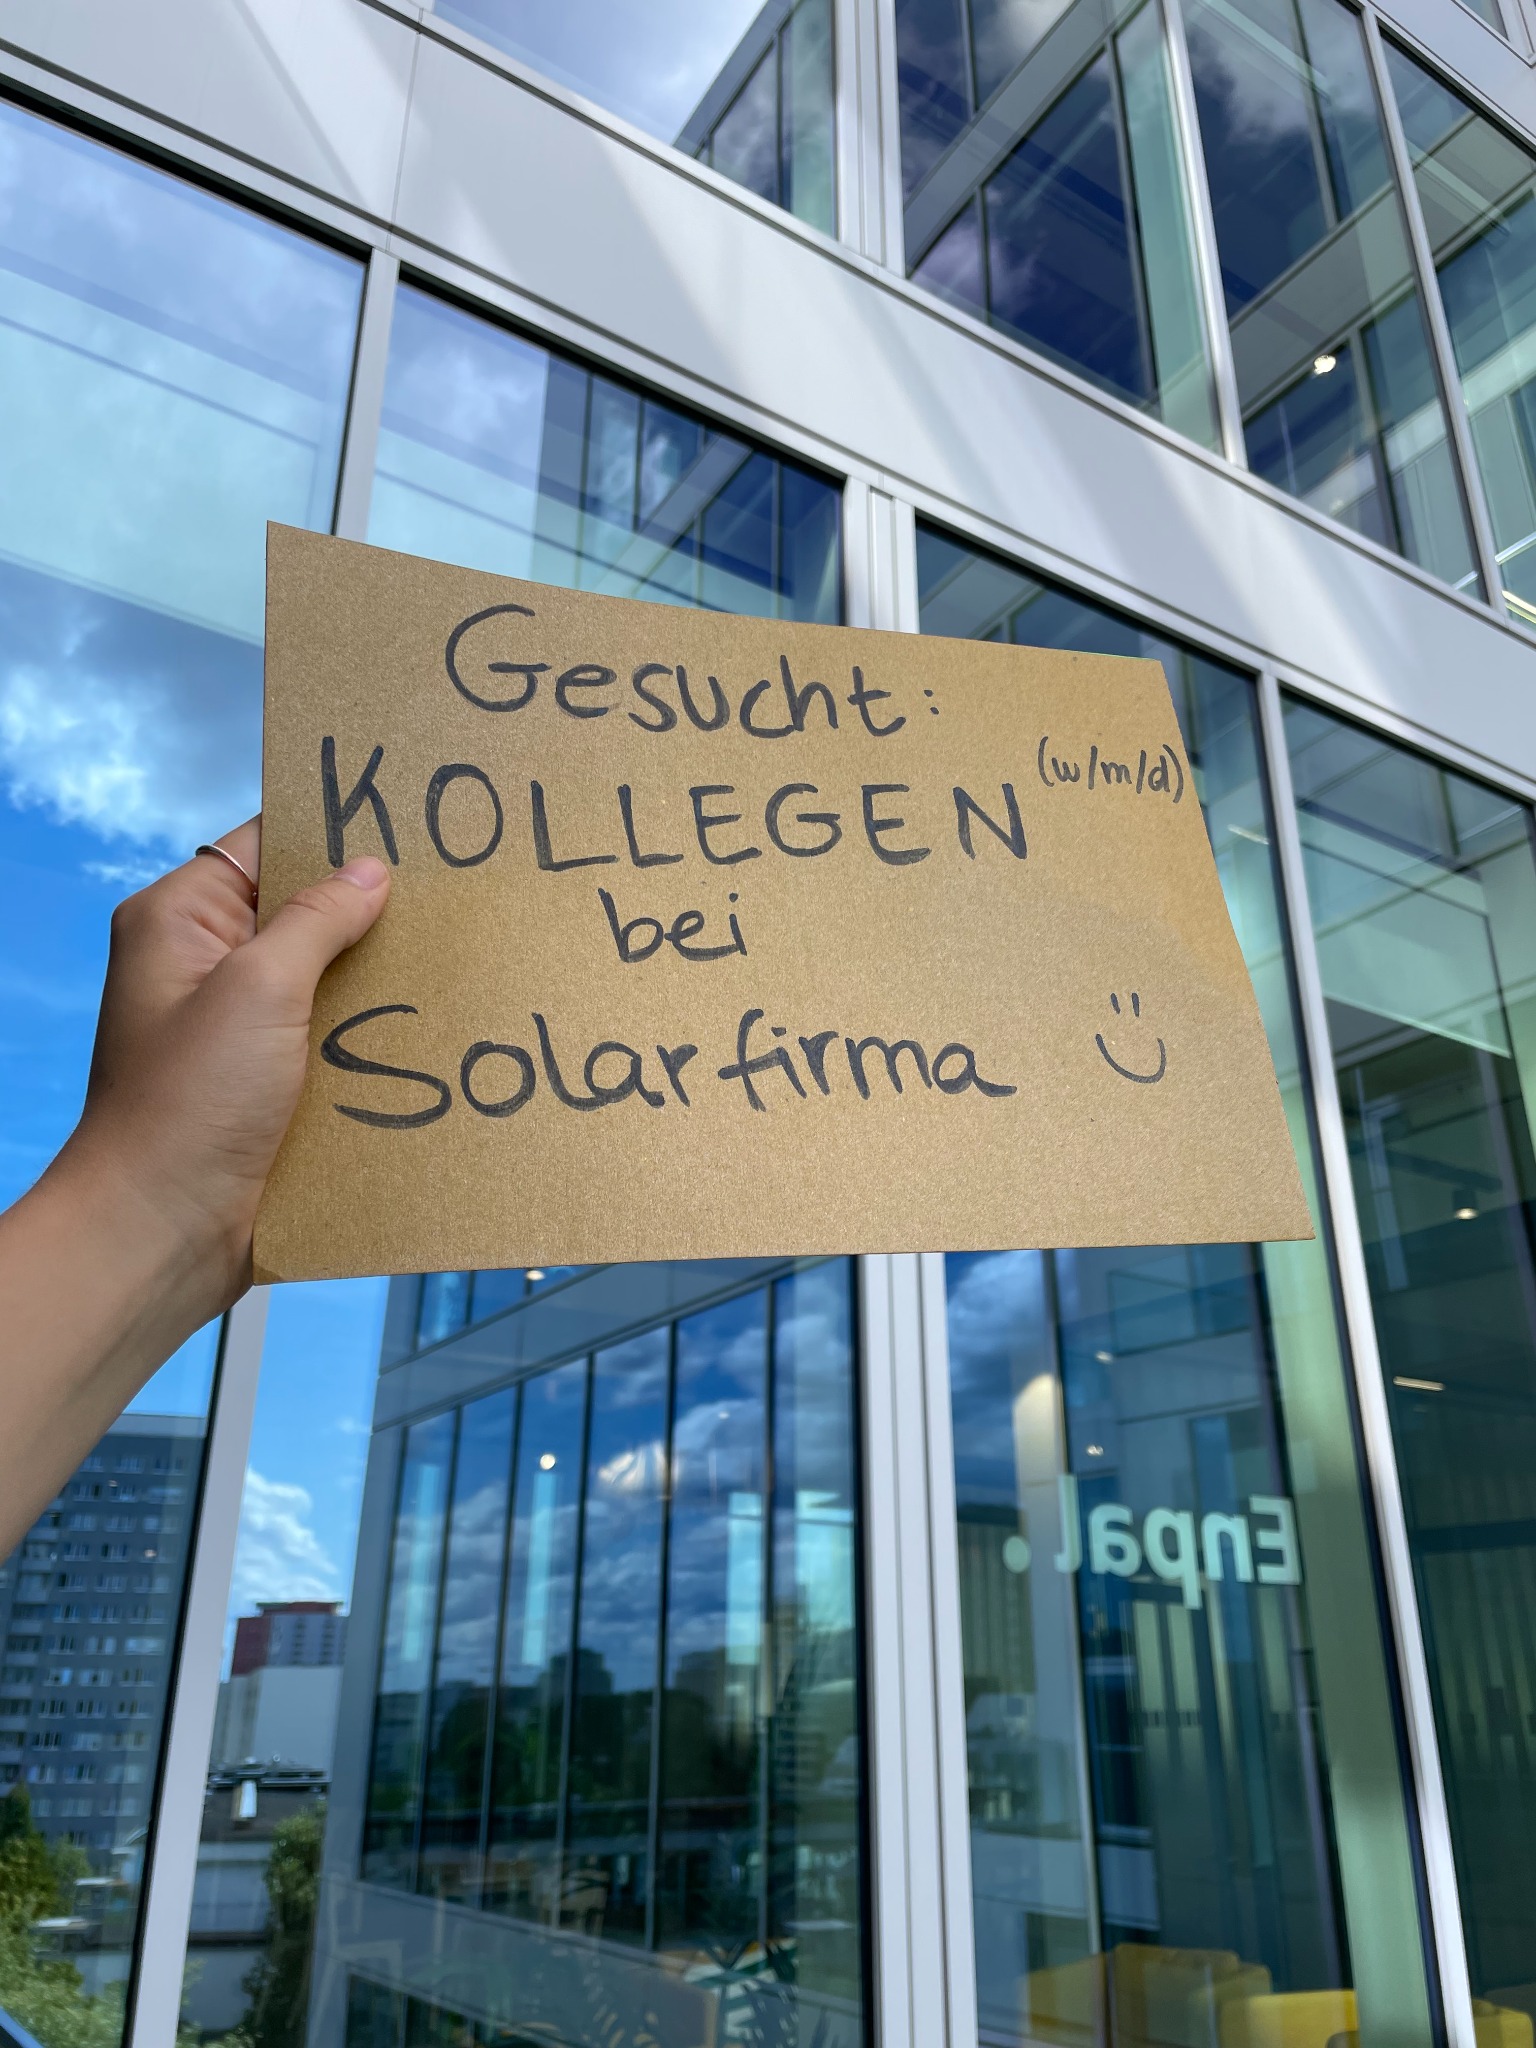 Gesucht:
KOLLEGEN (w/m/d)
bei
Solarfirma
Enpal.